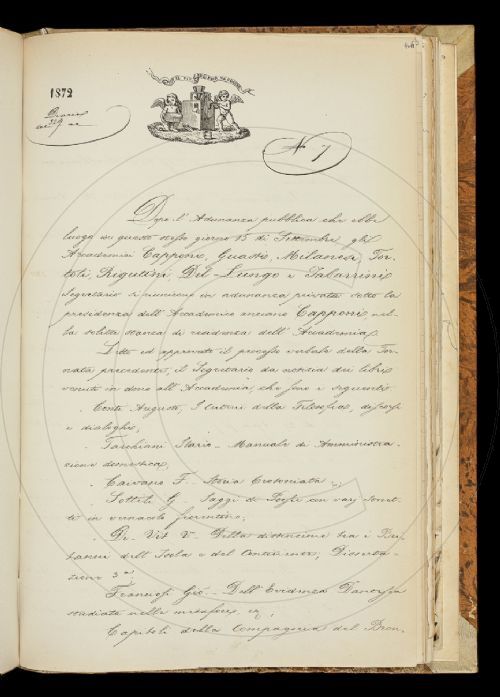 1872
N. 7
Dopo l'Adunanza pubblica che ebbe
luogo in questo stesso giorno 15 di Settembre gli
Accademici Capponi, Guasti, Milanesi, Tor-
toli, Rigutini, Del-Lungo e Tabarrini
Segretario si riunirono in adunanza privata sotto la
presidenza dell'Accademico anziano Capponi nel-
la solita stanza di residenza dell'Accademia.
Letto ed approvato il processo verbale della Tor-
nata precedente, il Segretario da notizia dei libri
venuti in dono all'Accademia, che sono i seguenti:
Conti Augusto, I Cuori della Filosofia, discorsi
e dialoghi;
Tarchiani Ilario - Manuale di Amministra-
zione domestica;
Caivano F. - Storia
Sottili G. Saggi di con varj Sonet-
ti in vernacolo fiorentino;
De-Vit V. - Della distinzione tra i Bri-
tanni dell'Isola e del Continente, Disserta-
zione 3a
Franciosi Gio. - Dell'Evidenza Dantesca
studiata nelle metafore,
Capitoli della Compagnia del Bron-